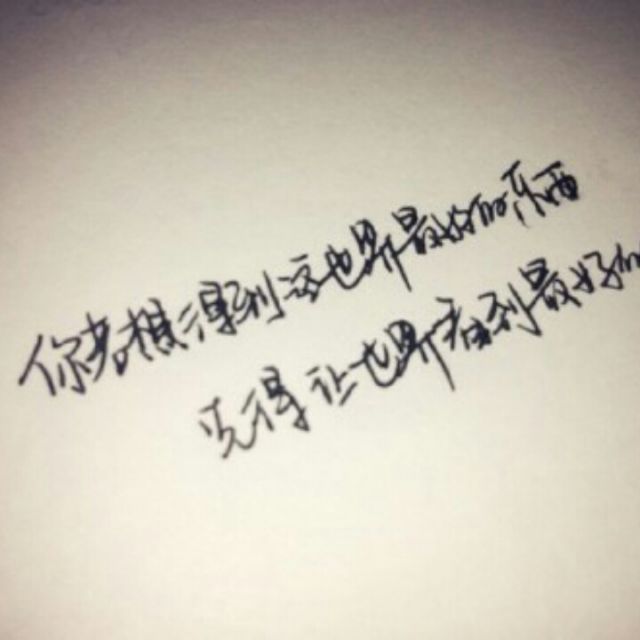 你若想得到这世界最好的东西
先得让世界看到最好的